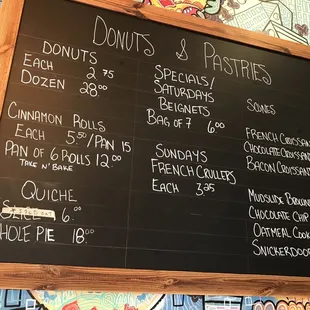 DONUTS & PASTRIES
DONUTS
EACH 2.75
DOZEN 28.00
CINNAMON ROLLS
EACH 5.50/PAN 15
PAN OF 6 ROLLS 12.00
TAKE N' BAKE
QUICHE
SLICE 6.00
HOLE PIE 18.00
SPECIALS/
SATURDAYS
BEIGNETS
BAG OF 7 6.00
SUNDAYS
FRENCH CRULLERS
EACH 3.25
SCONES
FRENCH CROISSAN
CHOCOLATE CROISSAN
BACON CROISSANT
MUDSLIDE BROWN
CHOCOLATE CHIP
OATMEAL COOK
SNICKERDOO